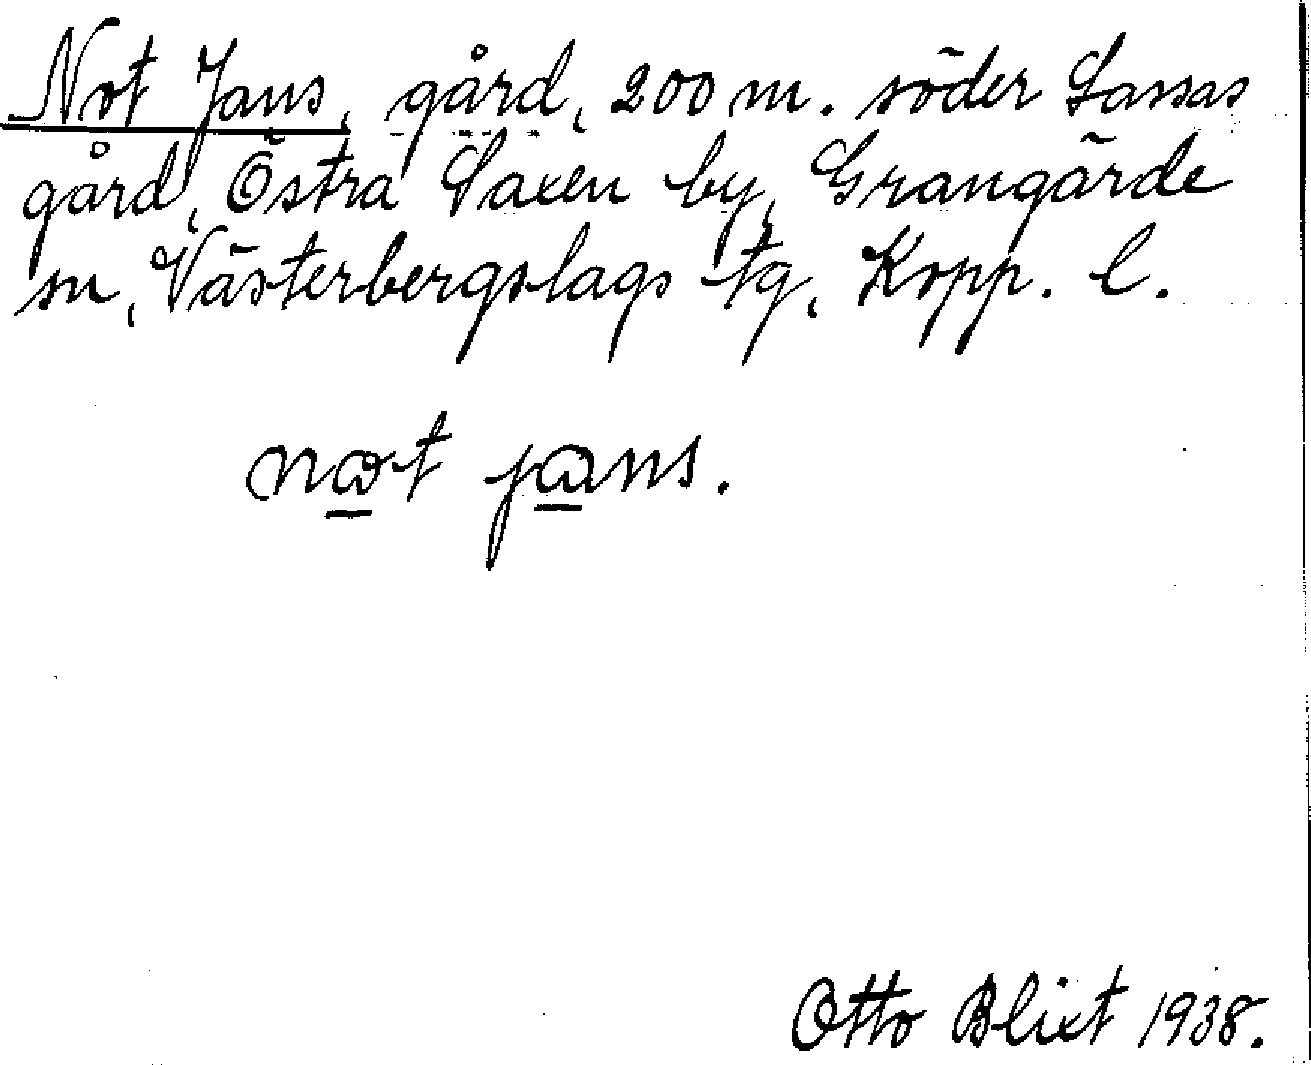 Not Jans, gård, 200 m. söder Lassas
gård, Östra Saxen by, Grangärde
sn, Västerbergslags tg, Kopp. l.
not jans.
Otto Blixt 1938.